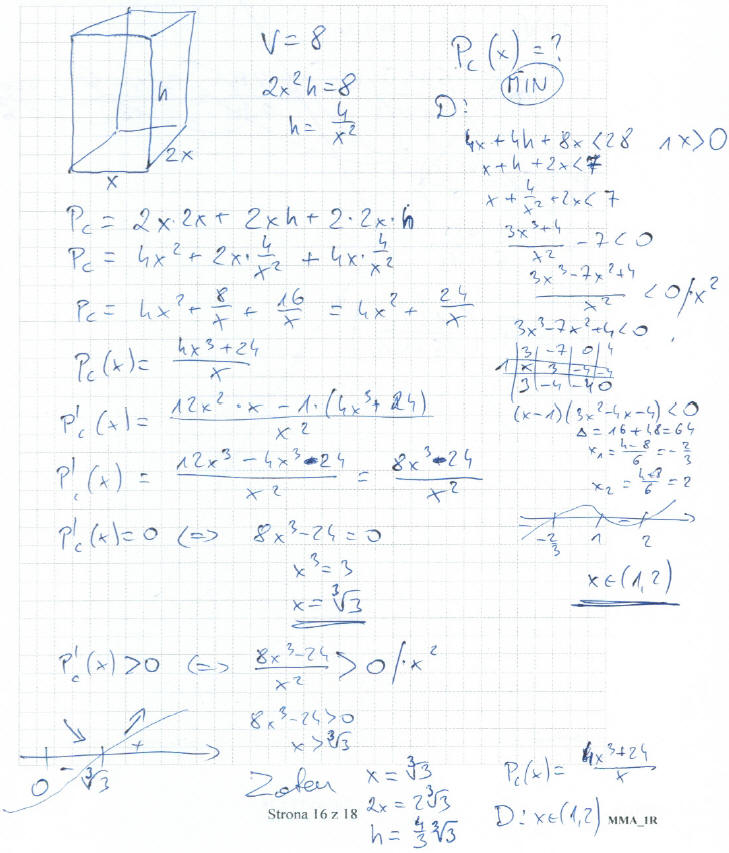 V = 8
2x²h = 8
h = 4/x²
P_c(x) = ?
MIN
h
2x
x
D:
4x + 4h + 8x < 28 ∧ x > 0
x + h + 2x < 7
x + 4/x² + 2x < 7
(3x³+4)/x² - 7 < 0
(3x³-7x²+4)/x² < 0 /·x²
3x³-7x²+4 < 0
| 3 | -7 | 0 | 4
1 | x | 3 | -4 | -4
| 3 | -4 | -4 | 0
(x-1)(3x²-4x-4) < 0
Δ = 16 + 48 = 64
x₁ = (4-8)/6 = -2/3
x₂ = (4+8)/6 = 2
-2/3 1 2
x ∈ (1,2)
P_c = 2x·2x + 2xh + 2·2x·h
P_c = 4x² + 2x·4/x² + 4x·4/x²
P_c = 4x² + 8/x + 16/x = 4x² + 24/x
P_c(x) = (4x³+24)/x
P'_c(x) = (12x²·x - 1·(4x³+24))/x²
P'_c(x) = (12x³-4x³-24)/x² = (8x³-24)/x²
P'_c(x) = 0 <=> 8x³-24 = 0
x³ = 3
x = ∛3
P'_c(x) > 0 <=> (8x³-24)/x² > 0 /·x²
8x³-24 > 0
x > ∛3
0 - ∛3 +
Zatem x = ∛3
2x = 2∛3
h = 4/3 ∛3
P_c(x) = (4x³+24)/x
D: x ∈ (1,2)
Strona 16 z 18
MMA_1R